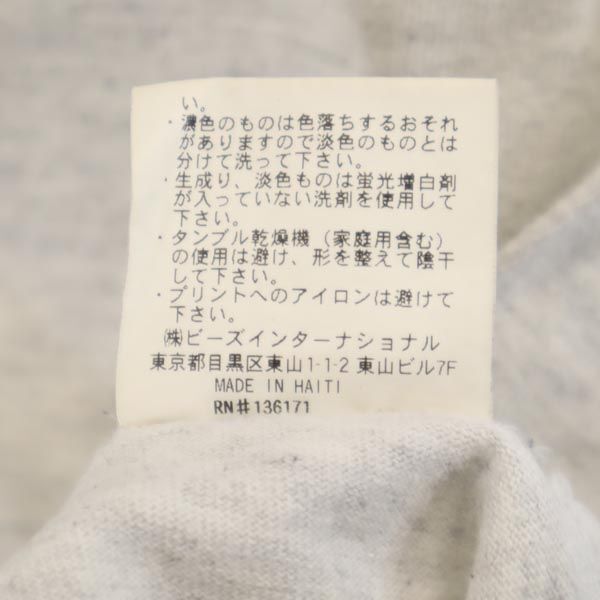 い。
・濃色のものは色落ちするおそれ
がありますので淡色のものとは
分けて洗って下さい。
・生成り、淡色ものは蛍光増白剤
が入っていない洗剤を使用して
下さい。
・タンブル乾燥機（家庭用含む）
の使用は避け、形を整えて陰干
して下さい。
・プリントへのアイロンは避けて
下さい。
㈱ビーズインターナショナル
東京都目黒区東山1-1-2 東山ビル7F
MADE IN HAITI
RN#136171